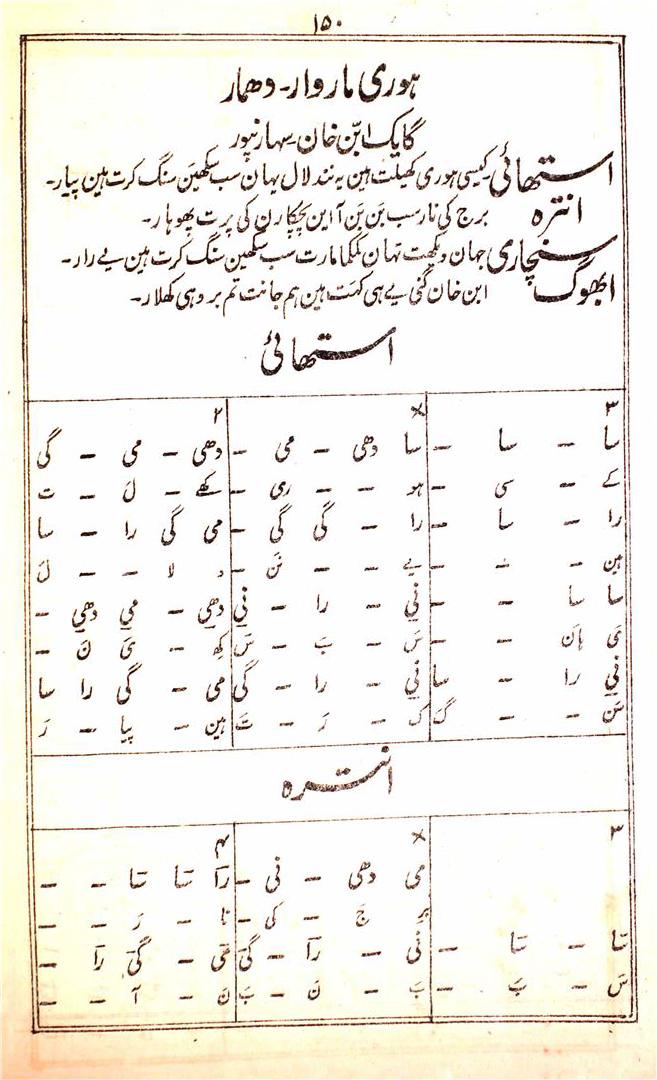 ۱۵۰
ہوری ماروار۔ دھمار
گایک ابّن خان۔ سہارنپور
استھائی۔ کیسی ہوری کھیلت ہین یہ نند لال یہان سب سکھین سنگ کرت ہین پیار۔
انترہ برج کی نار سب بَن بَن آ این پچکارن کی پرت پھوہار۔
سنچاری جہان دیکھت تہان کمکما مارت سب سکھین سنگ کرت ہین یے رار۔
ابھوگ ابن خان گنی یے ہی کہت ہین ہم جانت تم ہر وہی کھلار۔
استھائی
۳ × ۲
سا – – سا – سا دھی – می – دھی – می – گی
کے – سی – ہو – – ری – کھے – ل – ت
را – سا – را – گی گی – می گی را – سا
ہین – – – یے – – نَن – د لا – – ل
سا سا – – نی – را – نی دھی – می دھی –
یَ ہان – – سَ – بَ – سَ کھِ – یَ نَ –
نی را – سا نی – را – گی می – گی را سا
سَن – – گ ک – رَ – تَ ہین – پیا – رَ
انترہ
۳ × ۲
می دھی – نی – را تا تا – –
بر جَ – کی – نا – رَ – –
تا – تا – نی – را – گی می – گی را –
سَ – بَ – بَ – نَ – بَ نَ – آ – –